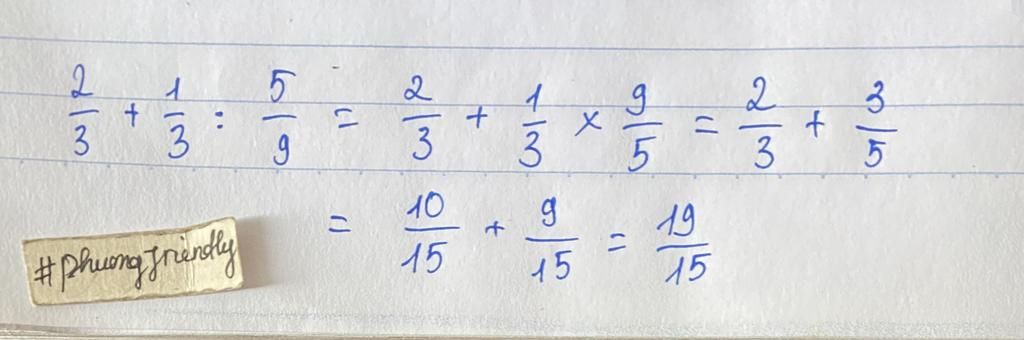 2/3 + 1/3 : 5/9 = 2/3 + 1/3 × 9/5 = 2/3 + 3/5
= 10/15 + 9/15 = 19/15
#phuongfriendly